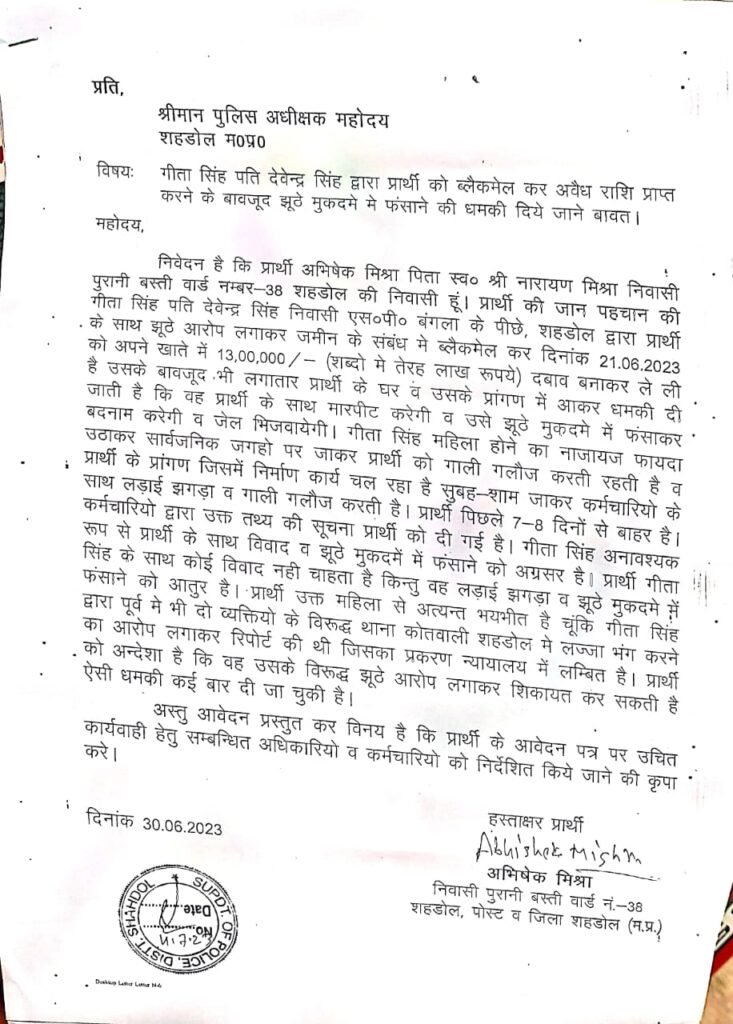 प्रति,
श्रीमान पुलिस अधीक्षक महोदय
शहडोल म0प्र0
विषयः गीता सिंह पति देवेन्द्र सिंह द्वारा प्रार्थी को ब्लैकमेल कर अवैध राशि प्राप्त
करने के बावजूद झूठे मुकदमे मे फंसाने की धमकी दिये जाने बावत।
महोदय,
निवेदन है कि प्रार्थी अभिषेक मिश्रा पिता स्व० श्री नारायण मिश्रा निवासी
पुरानी बस्ती वार्ड नम्बर–38 शहडोल की निवासी हूं। प्रार्थी की जान पहचान की
गीता सिंह पति देवेन्द्र सिंह निवासी एस०पी० बंगला के पीछे, शहडोल द्वारा प्रार्थी
के साथ झूठे आरोप लगाकर जमीन के संबंध मे ब्लैकमेल कर दिनांक 21.06.2023
को अपने खाते में 13,00,000/– (शब्दो मे तेरह लाख रूपये) दबाव बनाकर ले ली
है उसके बावजूद भी लगातार प्रार्थी के घर व उसके प्रांगण में आकर धमकी दी
जाती है कि वह प्रार्थी के साथ मारपीट करेगी व उसे झूठे मुकदमे में फंसाकर
बदनाम करेगी व जेल भिजवायेगी। गीता सिंह महिला होने का नाजायज फायदा
उठाकर सार्वजनिक जगहो पर जाकर प्रार्थी को गाली गलौज करती रहती है व
प्रार्थी के प्रांगण जिसमें निर्माण कार्य चल रहा है सुबह–शाम जाकर कर्मचारियो के
साथ लड़ाई झगड़ा व गाली गलौज करती है। प्रार्थी पिछले 7–8 दिनों से बाहर है।
कर्मचारियो द्वारा उक्त तथ्य की सूचना प्रार्थी को दी गई है। गीता सिंह अनावश्यक
रूप से प्रार्थी के साथ विवाद व झूठे मुकदमें में फंसाने को अग्रसर है। प्रार्थी गीता
सिंह के साथ कोई विवाद नही चाहता है किन्तु वह लड़ाई झगड़ा व झूठे मुकदमे में
फंसाने को आतुर है। प्रार्थी उक्त महिला से अत्यन्त भयभीत है चूंकि गीता सिंह
द्वारा पूर्व मे भी दो व्यक्तियो के विरूद्ध थाना कोतवाली शहडोल मे लज्जा भंग करने
का आरोप लगाकर रिपोर्ट की थी जिसका प्रकरण न्यायालय में लम्बित है। प्रार्थी
को अन्देशा है कि वह उसके विरूद्ध झूठे आरोप लगाकर शिकायत कर सकती है
ऐसी धमकी कई बार दी जा चुकी है।
अस्तु आवेदन प्रस्तुत कर विनय है कि प्रार्थी के आवेदन पत्र पर उचित
कार्यवाही हेतु सम्बन्धित अधिकारियो व कर्मचारियो को निर्देशित किये जाने की कृपा
करे।
दिनांक 30.06.2023
हस्ताक्षर प्रार्थी
Abhishek Mishra
अभिषेक मिश्रा
निवासी पुरानी बस्ती वार्ड नं.–38
शहडोल, पोस्ट व जिला शहडोल (म.प्र.)
SUPDT. OF POLICE, DISTT. SHAHDOL
No.
Date.